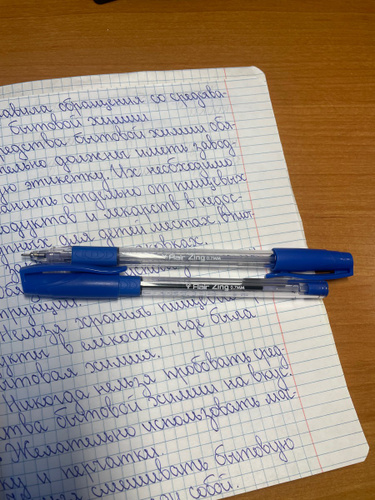 авила обращения со средства-
бытовой химии
редства бытовой химии обя-
тельно должны иметь завод-
ую этикетку. Их необходимо
ранить отдельно от пищевых
родуктов и лекарств в недос-
пных для детей местах,
ковках.
Flair Zing 0.7мм
Flair Zing 0.7мм
трукции.
Нельзя хранить пищевые
укты в ёмкости, где была
бытовая химия.
Никогда нельзя пробовать сред
ства бытовой химии на вкус.
Желательно использовать мас
ку и перчатки
смешивать бытовую
собой.